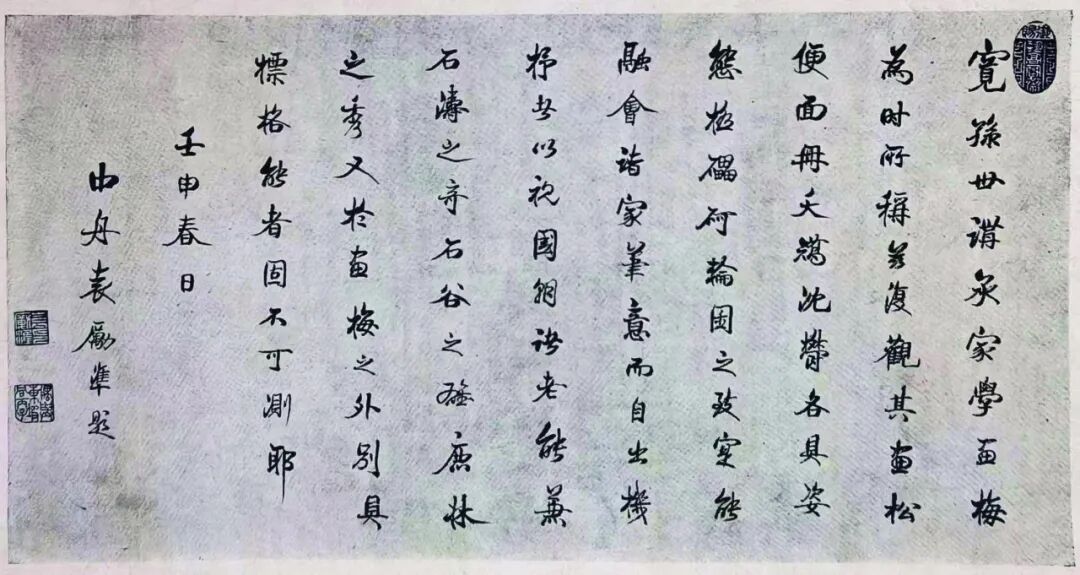 寬孫世講承家學畫梅
為時所稱茲復觀其畫松
便面冊夭矯沈鬱各具姿
態極礧砢輪囷之致寔能
融會諸家筆意而自出機
杼以視國朝諸老能兼
石濤之奇石谷之雄鹿牀
之秀又於畫梅之外別具
標格能者固不可測耶
壬申春日
中舟袁勵準題